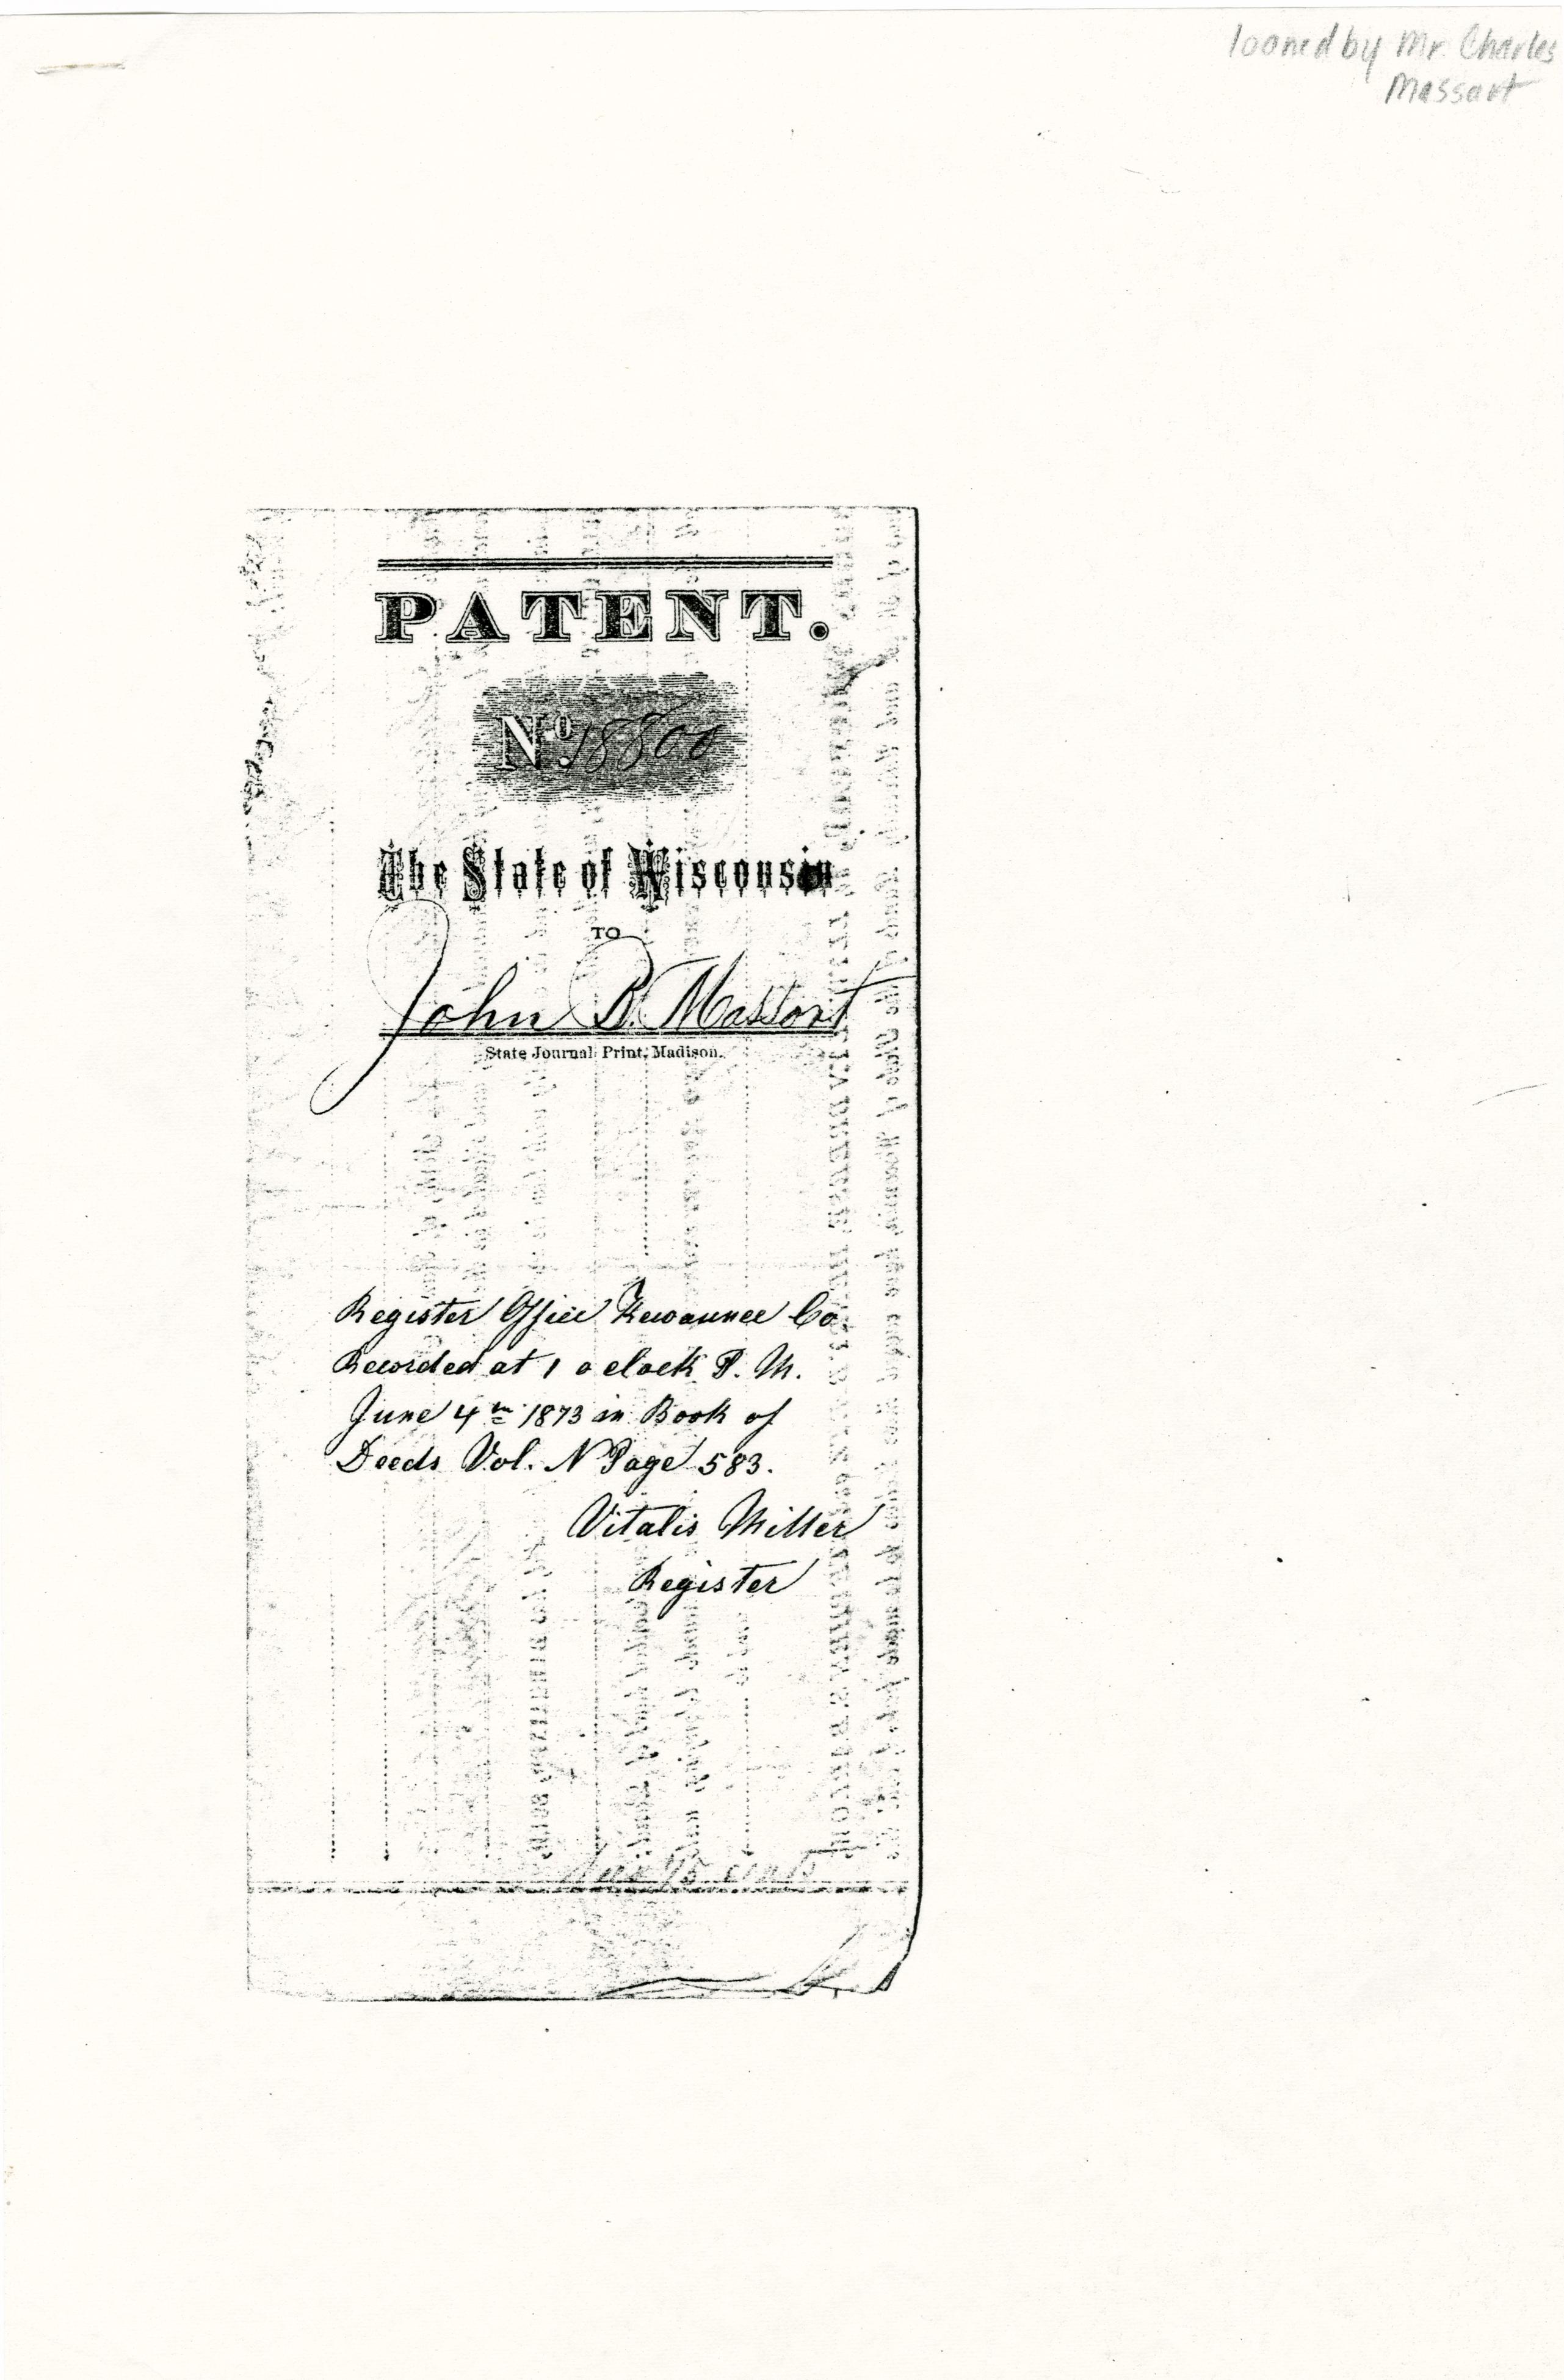 looned by Mr. Charles
Massart
PATENT.
No. 18800
The State of Wisconsin
TO
John B. Massart
State Journal Print, Madison.
Register Office Kewaunee Co.
Recorded at 1 o clock P. M.
June 4th 1873 in Book of
Deeds Vol. N Page 583.
Vitalis Miller
Register
75 cents